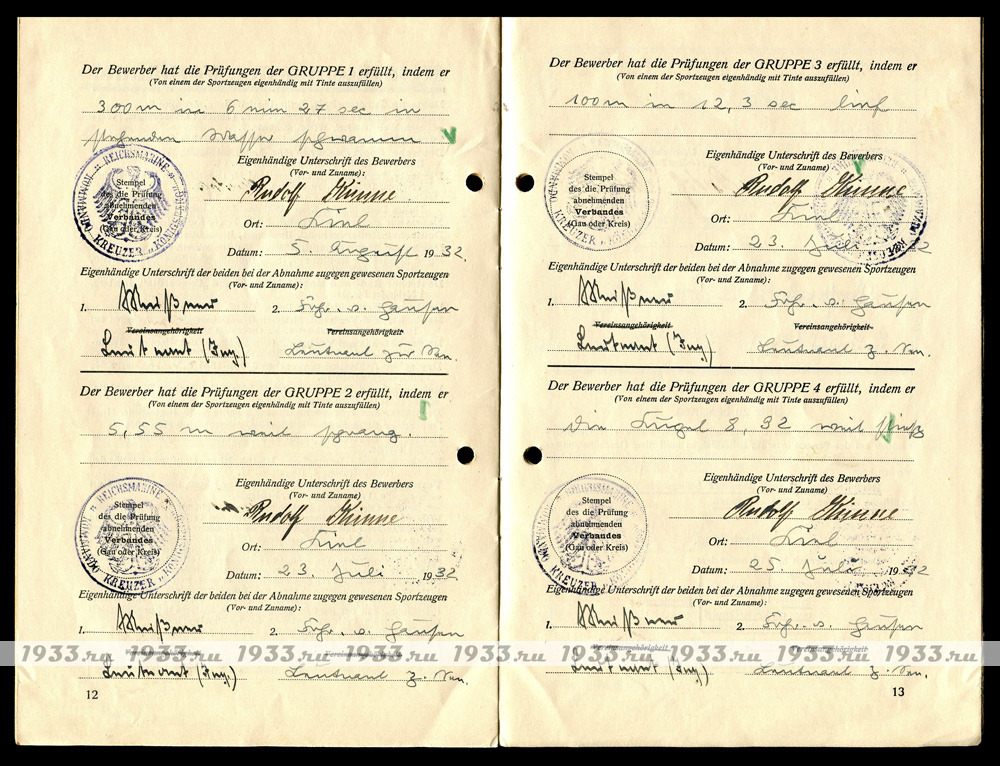 Der Bewerber hat die Prüfungen der GRUPPE 1 erfüllt, indem er
(Von einem der Sportzeugen eigenhändig mit Tinte auszufüllen)
300 m in 6 min 27 sec in
stehendem Wasser schwamm
REICHSMARINE
KOMMANDO KREUZER „KÖNIGSBERG"
Stempel
des die Prüfung
abnehmenden
Verbandes
(Gau oder Kreis)
Eigenhändige Unterschrift des Bewerbers
(Vor- und Zuname):
Rudolf Kinne
Ort: Kiel
Datum: 5. August 1932.
Eigenhändige Unterschrift der beiden bei der Abnahme zugegen gewesenen Sportzeugen
(Vor- und Zuname):
1. 2. Frhr. v.
Vereinsangehörigkeit Vereinsangehörigkeit
Leutnant (Ing.) Leutnant zur See.
Der Bewerber hat die Prüfungen der GRUPPE 2 erfüllt, indem er
(Von einem der Sportzeugen eigenhändig mit Tinte auszufüllen)
5,55 m weit sprang.
REICHSMARINE
KOMMANDO KREUZER
Stempel
des die Prüfung
abnehmenden
Verbandes
(Gau oder Kreis)
Eigenhändige Unterschrift des Bewerbers
(Vor- und Zuname)
Rudolf Kinne
Ort: Kiel
Datum: 23. Juli 1932
Eigenhändige Unterschrift der beiden bei der Abnahme zugegen gewesenen Sportzeugen
(Vor- und Zuname):
1. 2. Frhr. v.
Vereinsangehörigkeit
Leutnant (Ing.) Leutnant z. See.
12
Der Bewerber hat die Prüfungen der GRUPPE 3 erfüllt, indem er
(Von einem der Sportzeugen eigenhändig mit Tinte auszufüllen)
100 m in 12,3 sec lief
Stempel
des die Prüfung
abnehmenden
Verbandes
(Gau oder Kreis)
Eigenhändige Unterschrift des Bewerbers
(Vor- und Zuname):
Rudolf Kinne
Ort: Kiel
Datum: 23. Juli 1932
Eigenhändige Unterschrift der beiden bei der Abnahme zugegen gewesenen Sportzeugen
(Vor- und Zuname):
1. 2. Frhr. v.
Vereinsangehörigkeit Vereinsangehörigkeit
Leutnant (Ing.) Leutnant z. See.
Der Bewerber hat die Prüfungen der GRUPPE 4 erfüllt, indem er
(Von einem der Sportzeugen eigenhändig mit Tinte auszufüllen)
die Kugel 8,92 weit stieß
Stempel
des die Prüfung
abnehmenden
Verbandes
(Gau oder Kreis)
Eigenhändige Unterschrift des Bewerbers
(Vor- und Zuname)
Rudolf Kinne
Ort: Kiel
Datum: 25. Juli 1932
Eigenhändige Unterschrift der beiden bei der Abnahme zugegen gewesenen Sportzeugen
(Vor- und Zuname):
1. 2. Frhr. v.
Vereinsangehörigkeit Vereinsangehörigkeit
Leutnant (Ing.) Leutnant z. See.
13
1933.ru 1933.ru 1933.ru 1933.ru 1933.ru 1933.ru 1933.ru 1933.ru